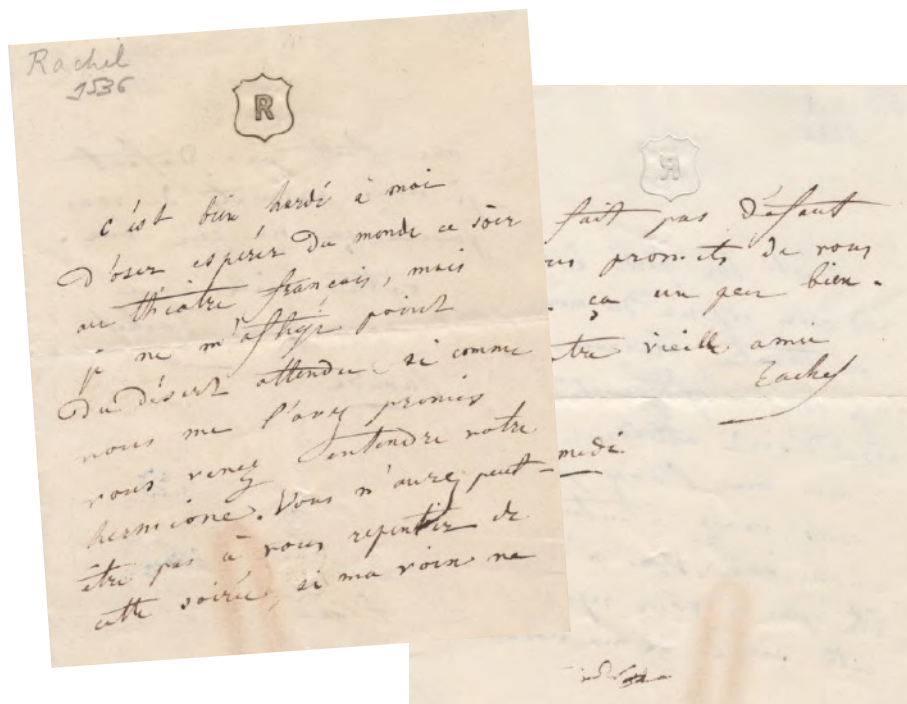 Rachel
1536
R
c'est bien hardi à moi
D'oser espérer Du monde ce soir
au théâtre français, mais
je ne m'afflige point
Du désert attendu, si comme
vous me l'avez promis
vous venez entendre votre
hermione. Vous n'aurez peut-
être pas à vous repentir de
cette soirée, si ma voix ne
R
fait pas Défaut
us promets de vous
ça un peu bien.
tre vieille amie
Rachel
medi